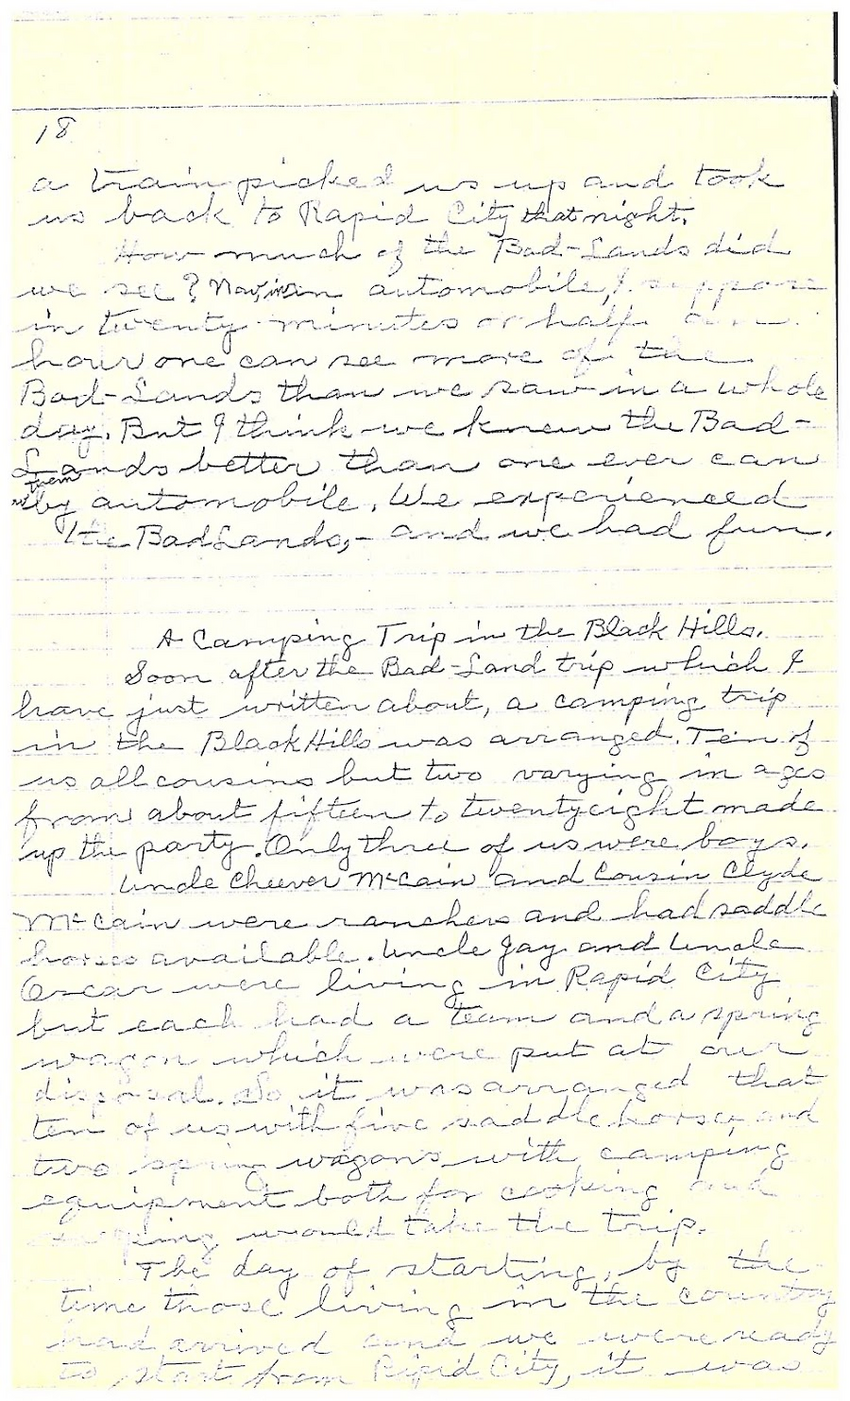 18
a train picked us up and took
us back to Rapid City that night.
How much of the Bad-Lands did
we see? Now, in an automobile, I suppose
in twenty minutes or half an
hour one can see more of the
Bad-Lands than we saw in a whole
day. But I think we knew the Bad-
Lands better than one ever can
from
by automobile. We experienced
the BadLands,- and we had fun.
A Camping Trip in the Black Hills.
Soon after the Bad-Land trip which I
have just written about, a camping trip
in the Black Hills was arranged. Ten of
us all cousins but two varying in ages
from about fifteen to twentyeight made
up the party. Only three of us were boys.
Uncle Cheever McCain and Cousin Clyde
McCain were ranchers and had saddle
horses available. Uncle Jay and Uncle
Oscar were living in Rapid City
but each had a team and a spring
wagon which were put at our
disposal. So it was arranged that
ten of us with five saddle horses and
two spring wagons with camping
equipment both for cooking and
sleeping would take the trip.
The day of starting, by the
time those living in the country
had arrived and we were ready
to start from Rapid City, it was